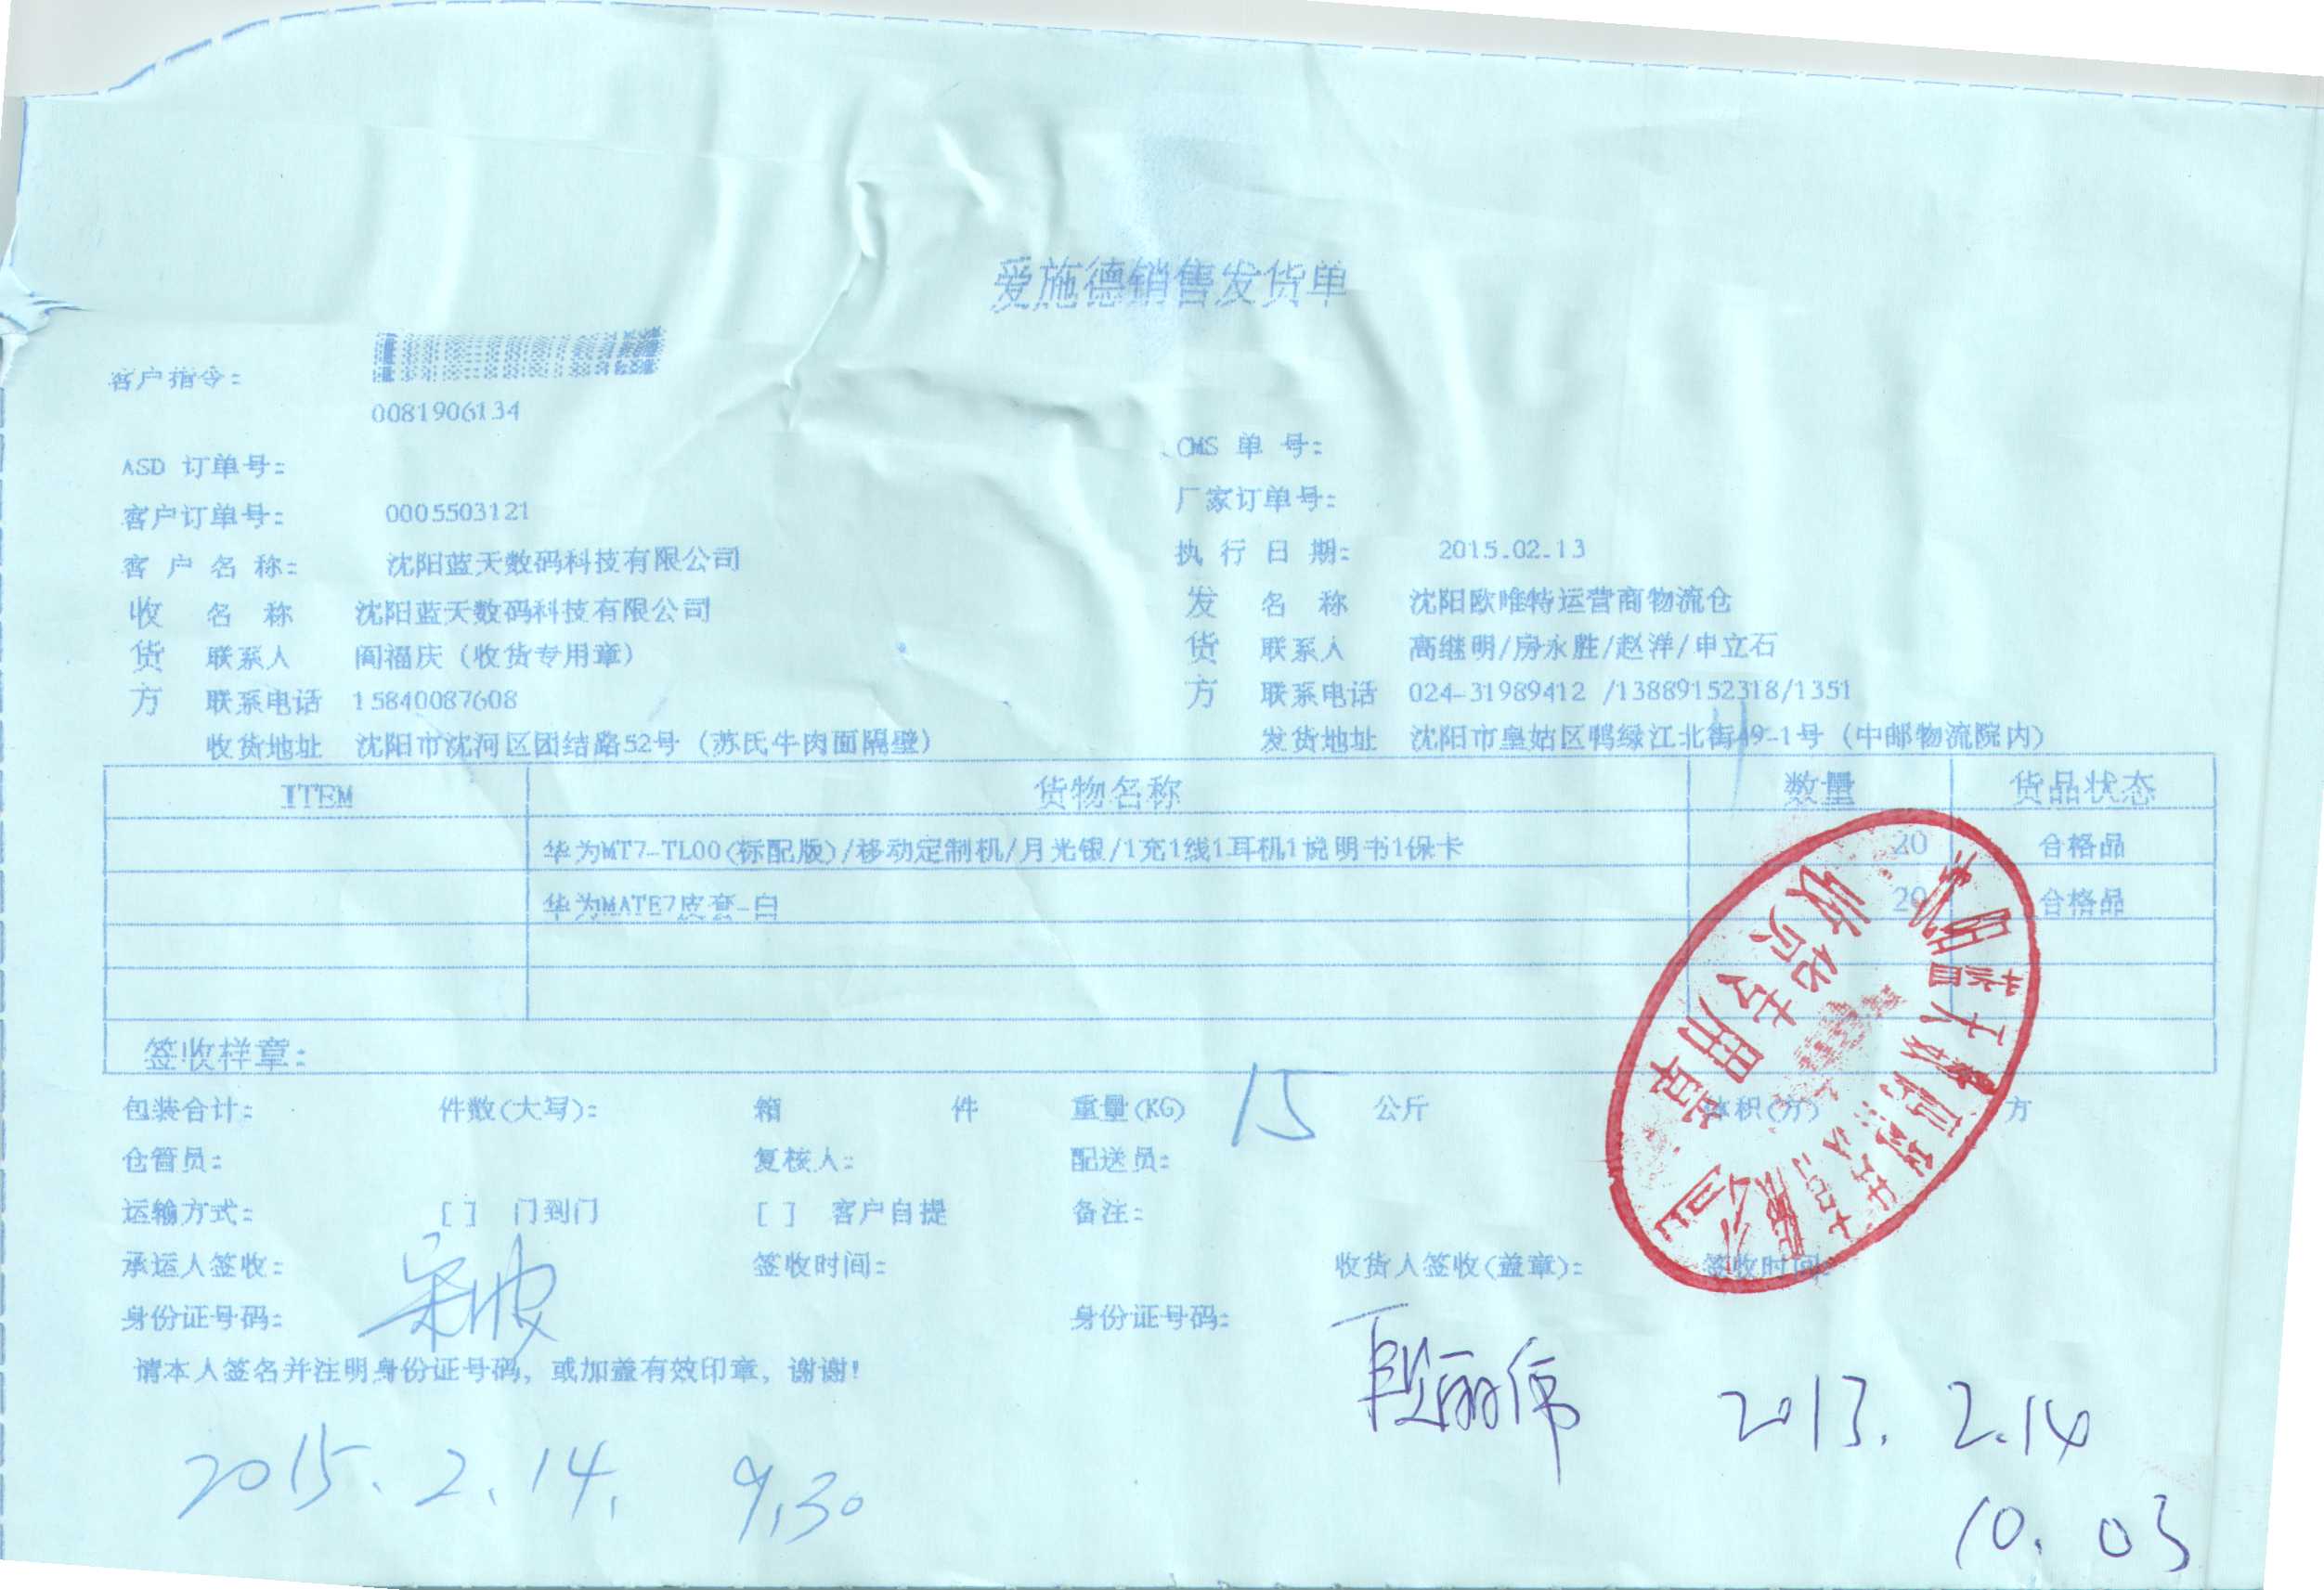 爱施德销售发货单
客户指令:
0081906134
ASD 订单号: CMS 单 号:
客户订单号: 0005503121 厂家订单号:
客 户 名 称: 沈阳蓝天数码科技有限公司 执 行 日 期: 2015.02.13
收 名 称 沈阳蓝天数码科技有限公司 发 名 称 沈阳欧唯特运营商物流仓
货 联系人 阎福庆（收货专用章） 货 联系人 高继明/房永胜/赵洋/申立石
方 联系电话 15840087608 方 联系电话 024-31989412 /13889152318/1351
收货地址 沈阳市沈河区团结路52号（苏氏牛肉面隔壁） 发货地址 沈阳市皇姑区鸭绿江北街49-1号（中邮物流院内）
ITEM 货物名称 数量 货品状态
华为MT7-TL00(标配版)/移动定制机/月光银/1充1线1耳机1说明书1保卡 20 合格品
华为MATE7皮套-白 20 合格品
签收样章:
包装合计: 件数(大写): 箱 件 重量(KG) 15 公斤 体积(方) 方
仓管员: 复核人: 配送员:
运输方式: [ ] 门到门 [ ] 客户自提 备注:
承运人签收: 宋波 签收时间: 收货人签收(盖章): 签收时间:
身份证号码: 身份证号码:
请本人签名并注明身份证号码, 或加盖有效印章, 谢谢!
段丽伟 2013. 2.14
2015. 2. 14. 9.30
10. 03
沈阳蓝天数码科技有限公司
收货专用章